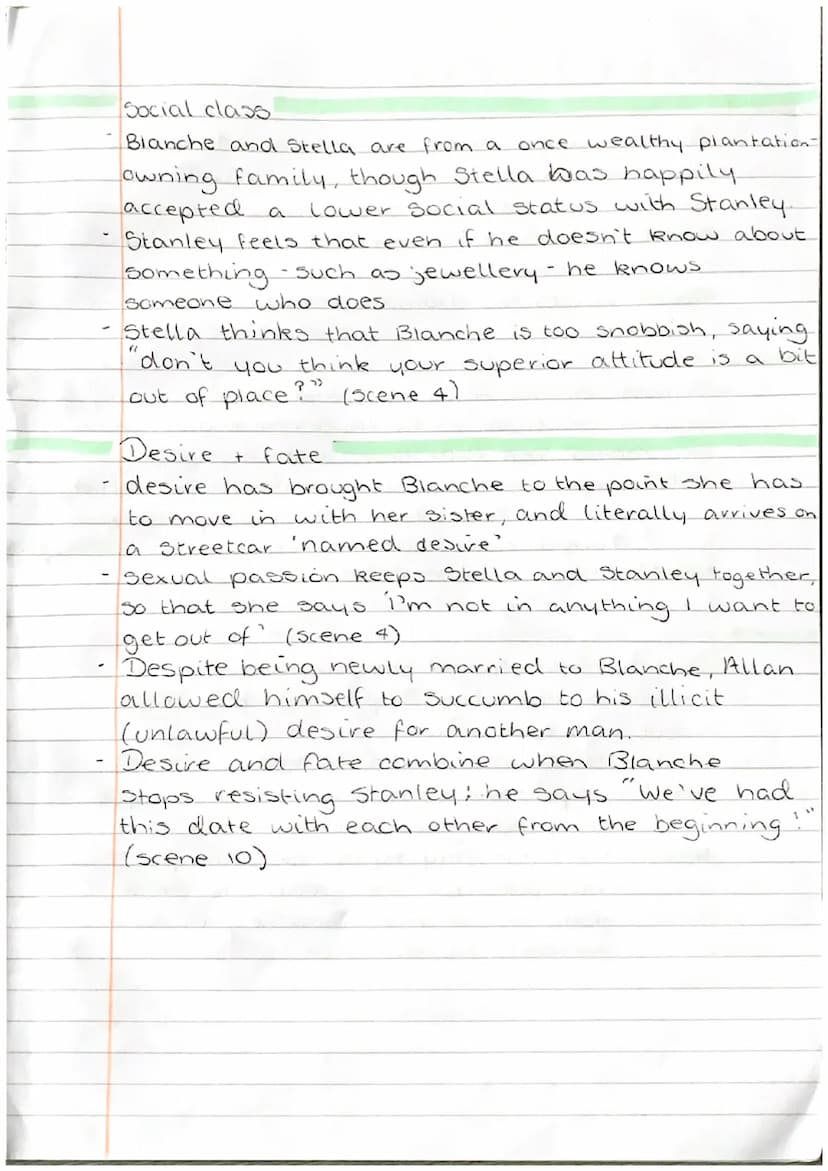 Social class
- Blanche and Stella are from a once wealthy plantation-
owning family, though Stella was happily
accepted a lower social status with Stanley.
- Stanley feels that even if he doesn't know about
something - such as jewellery - he knows
someone who does
- Stella thinks that Blanche is too snobbish, saying
"don't you think your superior attitude is a bit
out of place?" (scene 4)
Desire + fate
- desire has brought Blanche to the point she has
to move in with her sister, and literally arrives on
a streetcar 'named desire'
- Sexual passion keeps Stella and Stanley together,
so that she says 'I'm not in anything I want to
get out of' (scene 4)
- Despite being newly married to Blanche, Allan
allowed himself to succumb to his illicit
(unlawful) desire for another man.
- Desire and fate combine when Blanche
stops resisting Stanley; he says "We've had
this date with each other from the beginning!"
(scene 10)